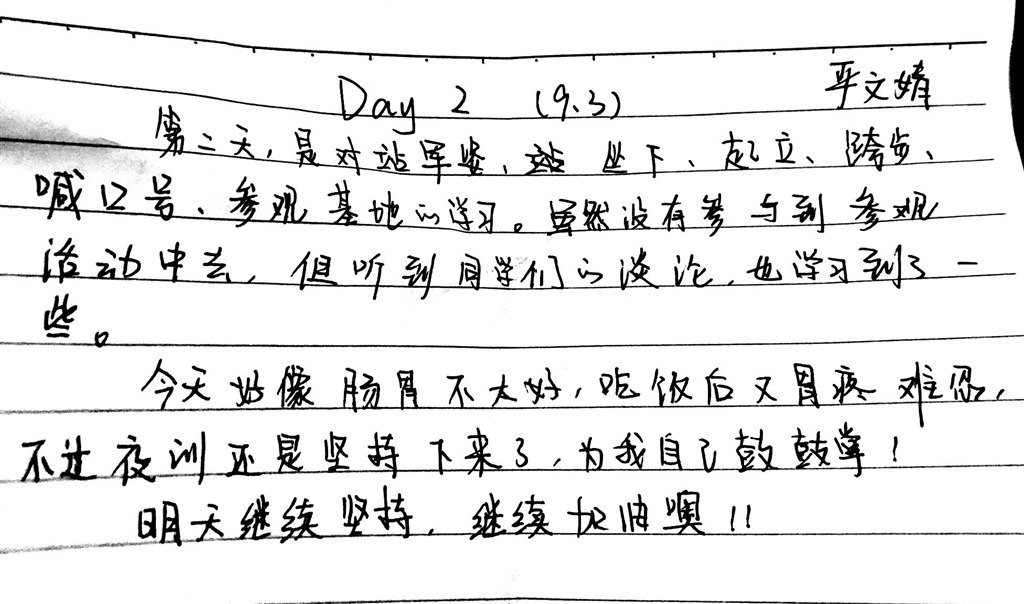 Day 2 (9.3) 严文婧
第二天，是对站军姿、站 坐下、起立、跨步、
喊口号、参观基地的学习。虽然没有参与到参观
活动中去，但听到同学们的谈论，也学习到了一
些。
今天好像肠胃不太好，吃饭后又胃疼难忍，
不过夜训还是坚持下来了，为我自己鼓鼓掌！
明天继续坚持，继续加油噢！！